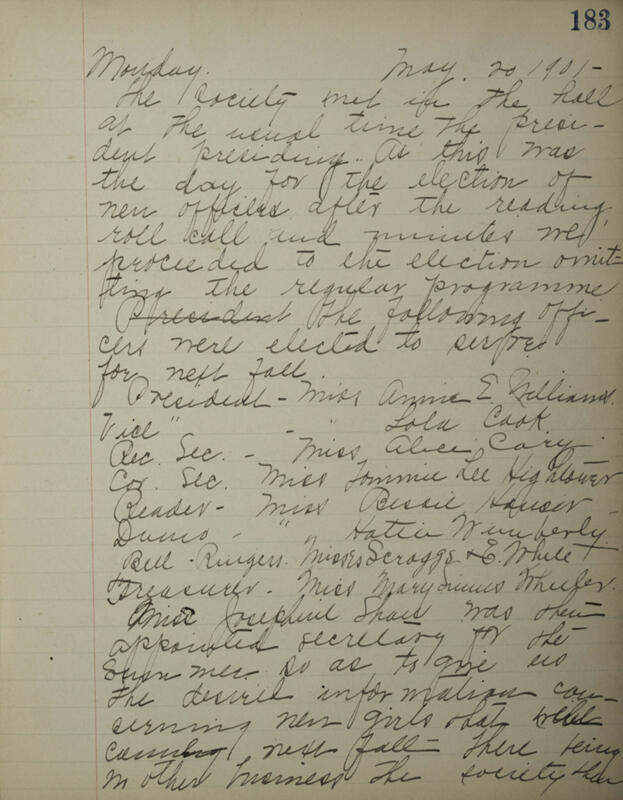 183
Monday. May. 20 1901-
The Society met in the hall
at the usual time the presi-
dent presiding. As this was
the day for the election of
new officers after the reading,
roll call and minutes we
proceeded to the election omit-
ting the regular programme
President the following offi-
cers were elected to serve
for next fall.
President - Miss Annie E. Williams.
Vice " - " Lola Cook
Rec. Sec. - Miss Alice Cary
Cor. Sec. Miss Tommie Lee Hightower
Reader - Miss Bessie Houser -
- " Hattie Wimberly.
Bell - Ringers. Misses Scroggs & E. White
Treasurer. Miss Mary Simms Wheeler.
Miss Josephine Shaw was then
appointed secretary for the
Summer so as to give us
the desired information con-
serning new girls that will
coming next fall. There being
no other business the society then